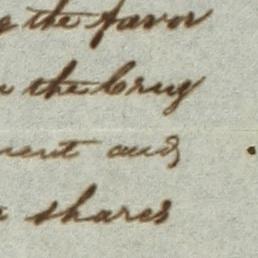 the favor
the Brig
ment and
shares